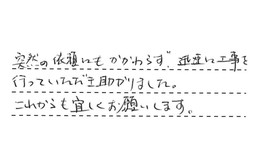 突然の依頼にもかかわらず、迅速に工事を
行っていただき助かりました。
これからも宜しくお願いします。